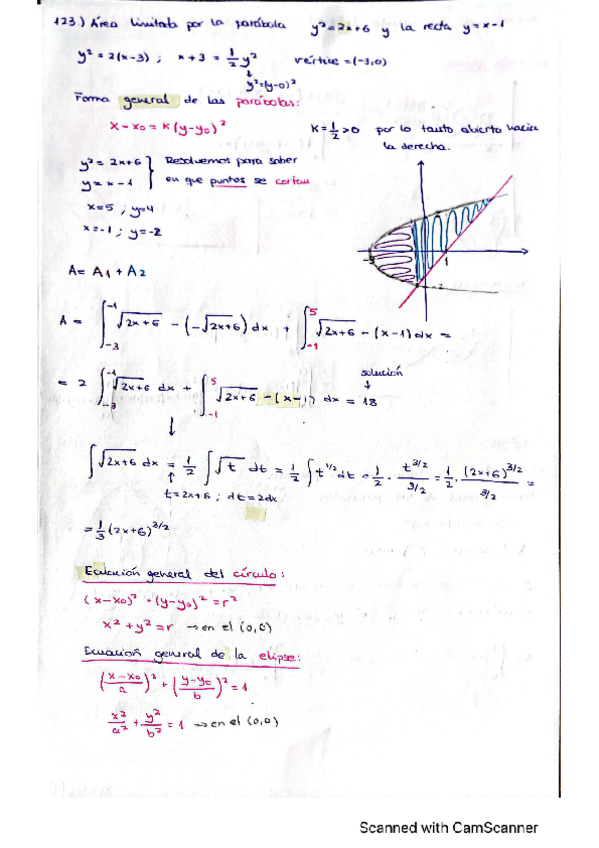 123) Área limitada por la parábola y² = 2x+6 y la recta y = x-1
y² = 2(x-3) ; x+3 = 1/2 y² vértice = (-3,0)
↓
y² = (y-0)²
Forma general de las parábolas:
x-x₀ = K(y-y₀)² K = 1/2 > 0 por lo tanto abierto hacia
la derecha.
y² = 2x+6 } Resolvemos para saber
y = x-1 } en que puntos se cortan
x=5 ; y=4
x=-1 ; y=-2
-3 1
-2
A = A₁ + A₂
A = ∫₋₃⁻¹ √(2x+6) - (-√(2x+6)) dx + ∫₋₁⁵ √(2x+6) - (x-1) dx =
solución
↓
= 2 ∫₋₃⁻¹ √(2x+6) dx + ∫₋₁⁵ √(2x+6) - (x-1) dx = 18
↓
∫ √(2x+6) dx = 1/2 ∫ √t dt = 1/2 ∫ t^(1/2) dt = 1/2 · t^(3/2)/(3/2) = 1/2 · (2x+6)^(3/2)/(3/2) =
↑
t = 2x+6 ; dt = 2dx
= 1/3 (2x+6)^(3/2)
Ecuación general del círculo:
(x-x₀)² + (y-y₀)² = r²
x² + y² = r → en el (0,0)
Ecuación general de la elipse:
((x-x₀)/a)² + ((y-y₀)/b)² = 1
x²/a² + y²/b² = 1 → en el (0,0)
Scanned with CamScanner